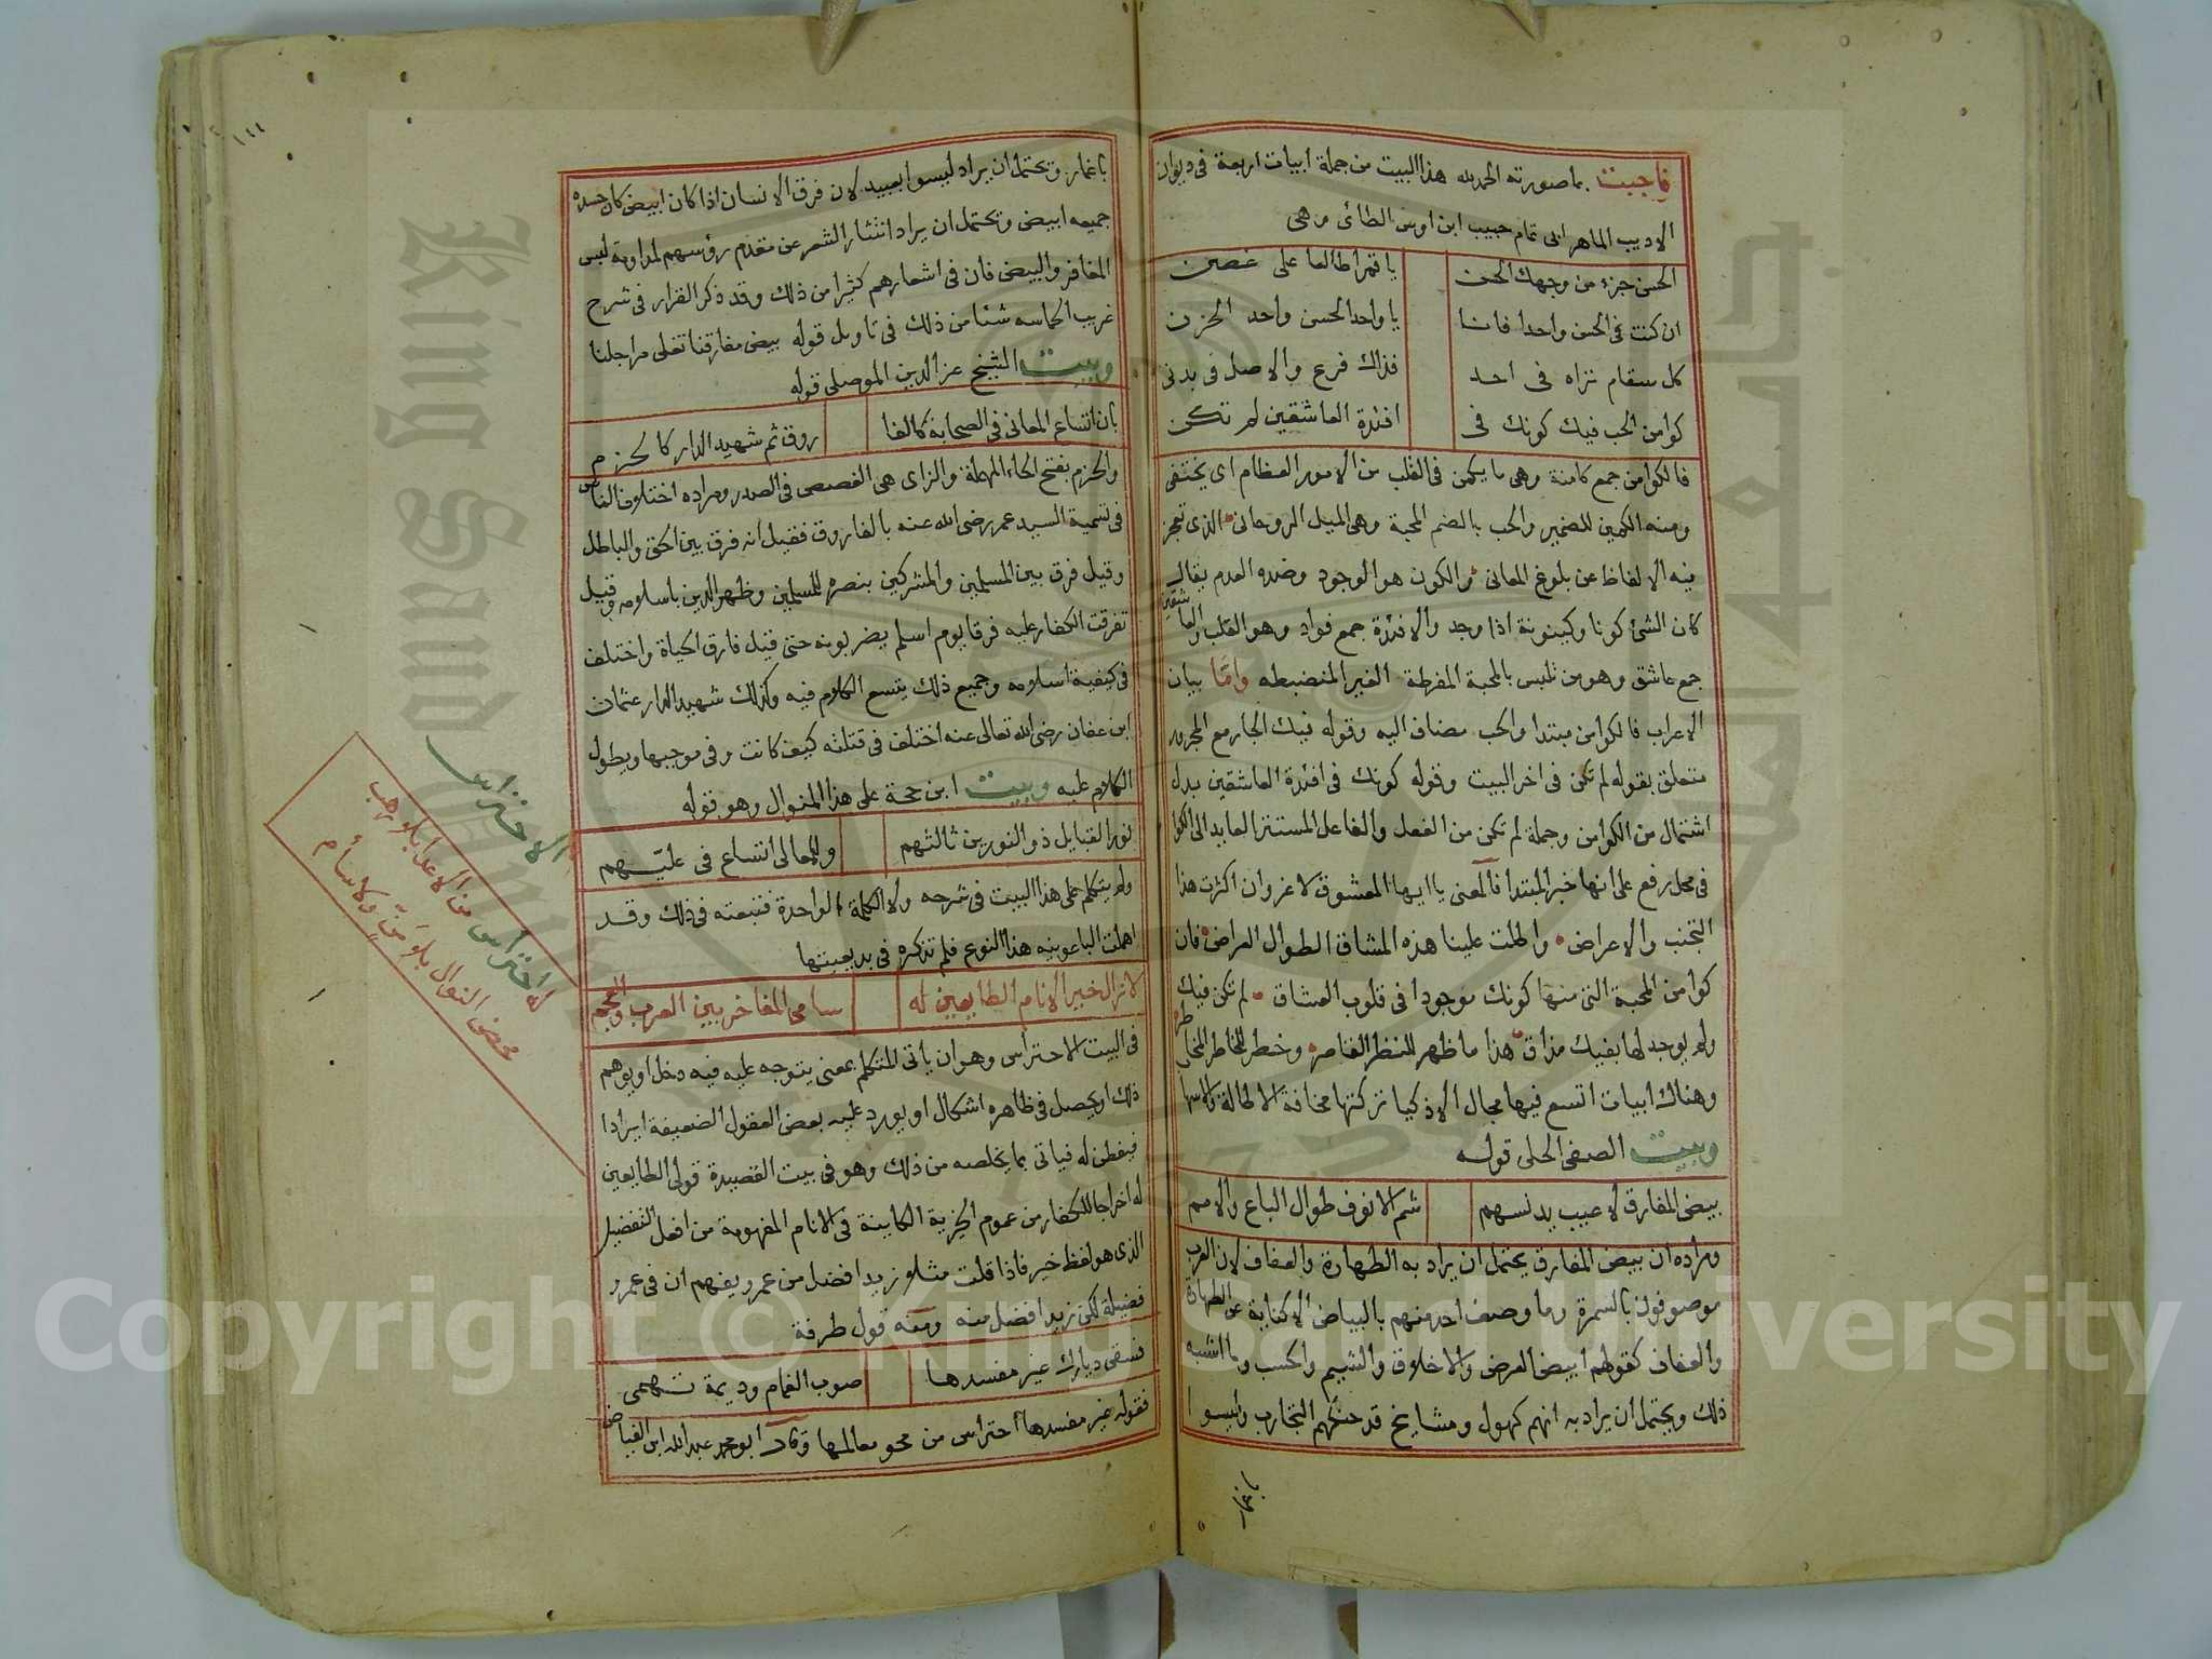 فاجبت بما صورته الحمد لله هذا البيت من جملة ابيات اربعة فى ديوان
الاديب الماهر ابى تمام حبيب ابن اوس الطائى وهى
الحسن جزء من وجهك الحسن يا قمرا طالعا على غصن
ان كنت فى الحسن واحدا فانا يا واحد الحسن واحد الحزن
كل سقام تراه فى احد فذاك فرع والاصل فى بدنى
كوامن الحب فيك كونك فى افئدة العاشقين لم تكن
فالكوامن جمع كامنة وهى ما يكمن فى القلب من الامور العظام اى يختفى
ومنه الكمين للضمير والحب بالضم المحبة وهى الميل الروحانى الذى تعجز
فيه الالفاظ عن بلوغ المعانى والكون هو الوجود وضده العدم يقال
كان الشئ كونا وكينونة اذا وجد والافئدة جمع فواد وهو القلب والعاشقين
جمع عاشق وهو من تلبس بالمحبة المفرطة الغير المنضبطه واما بيان
الاعراب فالكوامن مبتدا والحب مضاف اليه وقوله فيك الجار مع المجرور
متعلق بقوله لم تكن فى اخر البيت وقوله كونك فى افئدة العاشقين بدل
اشتمال من الكوامن وجملة لم تكن من الفعل والفاعل المستتر العايد الى الكوا
فى محل رفع على انها خبر المبتدا فالمعنى يا ايها المعشوق لا غرو ان اكثرت هذا
التجنب والاعراض واطلت علينا هذه المشاق الطوال العراض فان
كوامن المحبة التى منها كونك موجودا فى قلوب العشاق لم تكن فيك
ولم يوجد لها بفيك مذاق هذا ما ظهر للنظر القاصر وخطر للخاطر المخاطر
وهناك ابيات اتسع فيها مجال الاذكيا تركتها مخافة الاطالة والاسها
وبيت الصفى الحلى قوله
بيض المفارق لا عيب يدنسهم شم الانوف طوال الباع والامم
ومراده ان بيض المفارق يحتمل ان يراد به الطهارة والعفاف لان العرب
موصوفون بالسمرة وما وصف احد منهم بالبياض الا كناية عن الطهارة
والعفاف كقولهم ابيض العرض والاخلاق والشيم والحسب وما اشبه
ذلك ويحتمل ان يراد به انهم كهول ومشايخ قد حنكهم التجارب وليسوا
باغمار
١٤٤
باغمار ويحتمل ان يراد ليسوا بعبيد لان فرق الانسان اذا كان ابيض كان جسده
جميعه ابيض ويحتمل ان يراد انتثار الشعر عن مقدم رؤسهم لمداومة لبس
المغافر والبيض فان فى اشعارهم كثيرا من ذلك وقد ذكر القزاز فى شرح
غريب الحماسه شئا من ذلك فى تاويل قوله بيض مفارقنا تغلى مراجلنا
وبيت الشيخ عز الدين الموصلى قوله
بان اتساع المعانى فى الصحابة كالفا روق ثم شهيد الدار كالحزم
والحزم بفتح الحاء المهملة والزاى هى الغصص فى الصدر ومراده اختلاف الناس
فى تسمية السيد عمر رضى الله عنه بالفاروق فقيل انه فرق بين الحق والباطل
وقيل فرق بين المسلمين والمشركين بنصره للمسلمين وظهر الدين باسلامه وقيل
تفرقت الكفار عليه فرقا يوم اسلم يضربونه حتى قيل فارق الحياة واختلف
فى كيفية اسلامه وجميع ذلك يتسع الكلام فيه وكذلك شهيد الدار عثمان
ابن عفان رضى الله تعالى عنه اختلف فى قتلته كيف كانت وفى موجبها ويطول
الكلام عليه وبيت ابن حجة على هذا المنوال وهو قوله
نور القبايل ذو النورين ثالثهم وللمعالى اتساع فى عليهم
ولم يتكلم على هذا البيت فى شرحه ولا الكلمة الواحدة فتبعته فى ذلك وقد
اهملت الباعونيه هذا النوع فلم تذكره فى بديعيتها
لا زال خير الانام الطايعين له سامى المفاخر بين العرب والعجم
فى البيت الاحتراس وهو ان ياتى المتكلم بمعنى يتوجه عليه فيه دخل او يوهم
ذلك او يحصل فى ظاهره اشكال او يورد عليه بعض العقول الضعيفة ايرادا
فيفطن له فياتى بما يخلصه من ذلك وهو فى بيت القصيدة قولى الطايعين
له اخراجا للكفار من عموم الخيرية الكاينة فى الانام المفهومة من افعل التفضيل
الذى هو لفظ خير فاذا قلت مثلا زيد افضل من عمرو يفهم ان فى عمرو
فضيلة لكن زيد افضل منه ومنه قول طرفة
فسقى ديارك غير مفسدها صوب الغمام وديمة تهمى
فقوله غير مفسدها احتراس من محو معالمها وقال ابو محمد عبد الله ابن الفياض
الاحتراس
له احتراس من الاعدا بلا رهب
محض النوال بلا منّ ولا سأم
King Saud University
Copyright © King Saud University